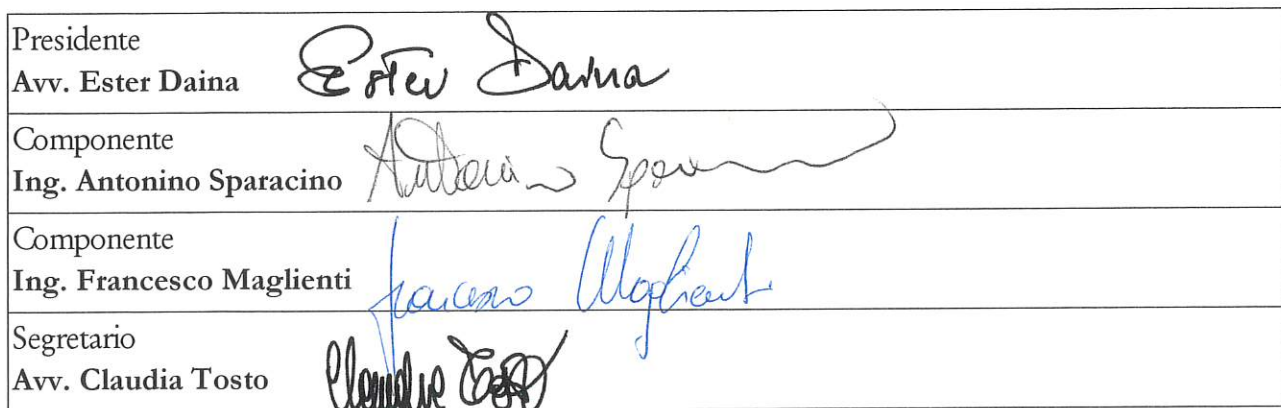 Presidente
Avv. Ester Daina Ester Daina
Componente
Ing. Antonino Sparacino Antonino
Componente
Ing. Francesco Maglienti Francesco Maglienti
Segretario
Avv. Claudia Tosto Claudia